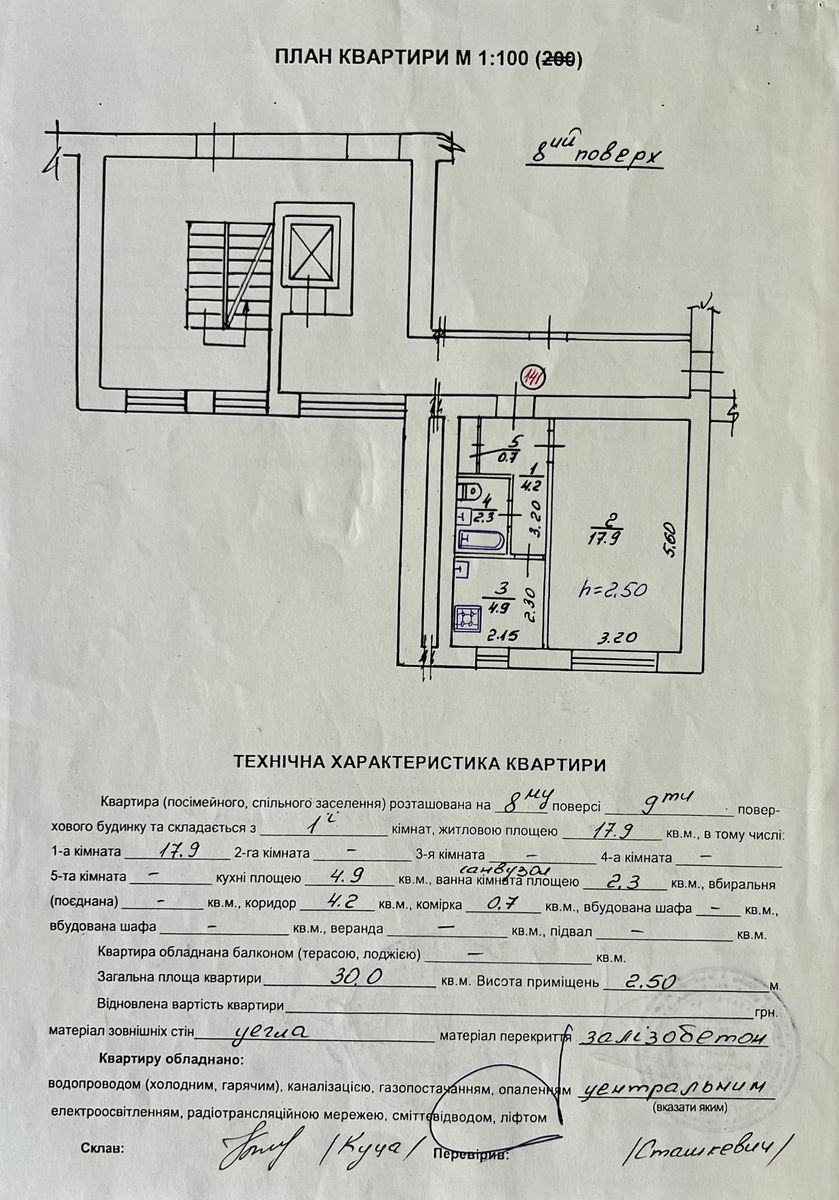 ПЛАН КВАРТИРИ М 1:100 (200)
8ий поверх
141
5
0.7
1
4.2
3.20
4
2.3
2
17.9
5.60
h=2.50
3
4.9
2.30
2.15
3.20
ТЕХНІЧНА ХАРАКТЕРИСТИКА КВАРТИРИ
Квартира (посімейного, спільного заселення) розташована на 8му поверсі 9ти повер-
хового будинку та складається з 1ї кімнат, житловою площею 17.9 кв.м., в тому числі:
1-а кімната 17.9 2-га кімната – 3-я кімната – 4-а кімната –
санвузол
5-та кімната – кухні площею 4.9 кв.м., ванна кімната площею 2,3 кв.м., вбиральня
(поєднана) – кв.м., коридор 4.2 кв.м., комірка 0,7 кв.м., вбудована шафа – кв.м.,
вбудована шафа – кв.м., веранда – кв.м., підвал – кв.м.
Квартира обладнана балконом (терасою, лоджією) – кв.м.
Загальна площа квартири 30.0 кв.м. Висота приміщень 2.50 м.
Відновлена вартість квартири грн.
матеріал зовнішніх стін цегла матеріал перекриття залізобетон
Квартиру обладнано:
водопроводом (холодним, гарячим), каналізацією, газопостачанням, опаленням центральним
(вказати яким)
електроосвітленням, радіотрансляційною мережею, сміттєвідводом, ліфтом
Склав: /Куца/ Перевірив: /Сташкевич/